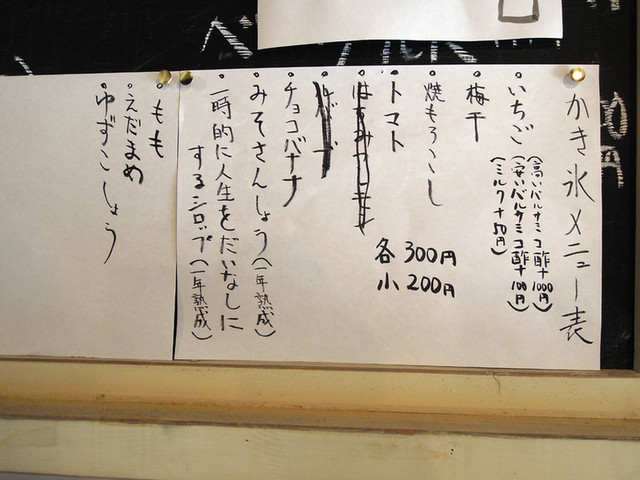 かき氷メニュー表
・いちご
(高いバルサミコ酢+1000円)
(安いバルサミコ酢+100円)
(ミルク+50円)
・梅干
・焼もろこし
・トマト
各 300円
小 200円
・チョコバナナ
・みそさんしょう(一年熟成)
・一時的に人生をだいなしに
するシロップ(一年熟成)
・もも
・えだまめ
・ゆずこしょう